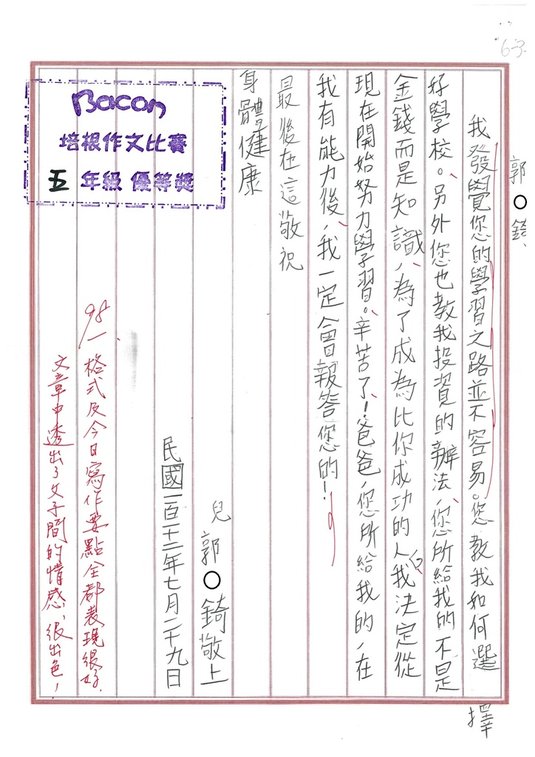 63
郭○錡
我發覺您的學習之路並不容易。您教我如何選擇
好學校。另外您也教我投資的辦法,您所給我的不是
金錢而是知識,為了成為比你成功的人,我決定從
現在開始努力學習。辛苦了!爸爸,您所給我的,在
我有能力後,我一定會報答您的!
最後在這敬祝
身體健康
兒 郭○錡敬上
民國一百十二年七月二十九日
98/一格式及今日寫作要點全都表現很好.
文章中透出了父子間的情感,很出色!
Bacon
培根作文比賽
五 年級 優等獎